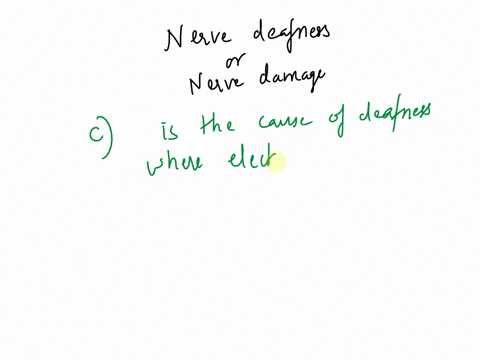 Nerve deafness
or
Nerve damage
c) is the cause of deafness
where elect